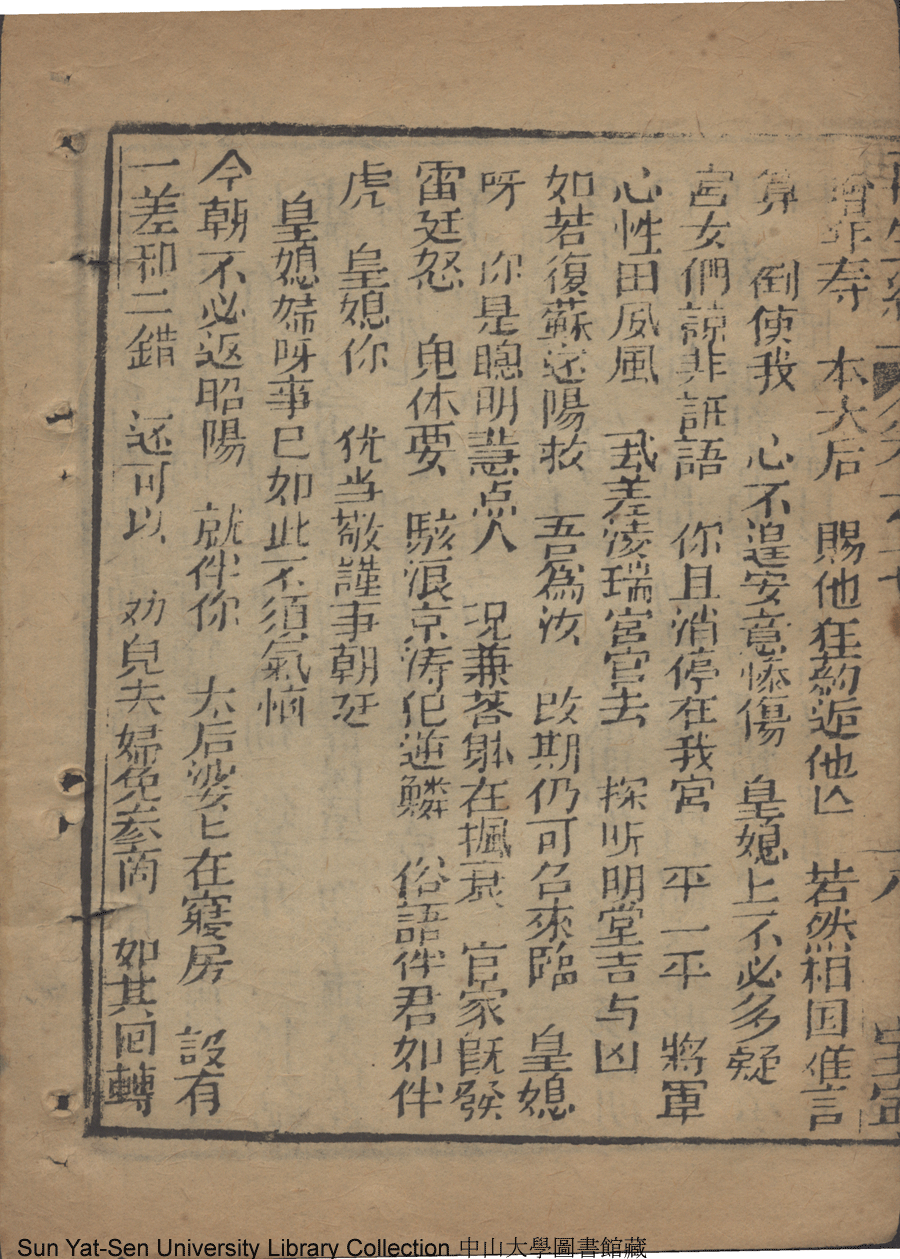 年寿　本太后　賜他狂葯逅他亾　若然相国准言
算　倒使我　心不遑安意惨傷　皇媳上不必多疑
宮女們諒非誑語　你且消停在我宮　平一平　將軍
心性田夙風　我差凌瑞宮官去　探听明堂吉与凶
如若復蘇还陽救　吾為汝　改期仍可召來臨　皇媳
呀　你是聰明慧点人　况兼答　在掫衰　官家旣發
雷廷怒　皃休要　駭浪京涛犯逆鱗　俗語伴君如伴
虎　皇媳你　优当敬謹事朝廷
皇媳婦呀事已如此不須氣恼
今朝不必返昭陽　就伴你　太后婆匕在寢房　設有
一差和二錯　还可以　劝皃夫婦免参商　如其囘轉
Sun Yat-Sen University Library Collection 中山大學圖書館藏